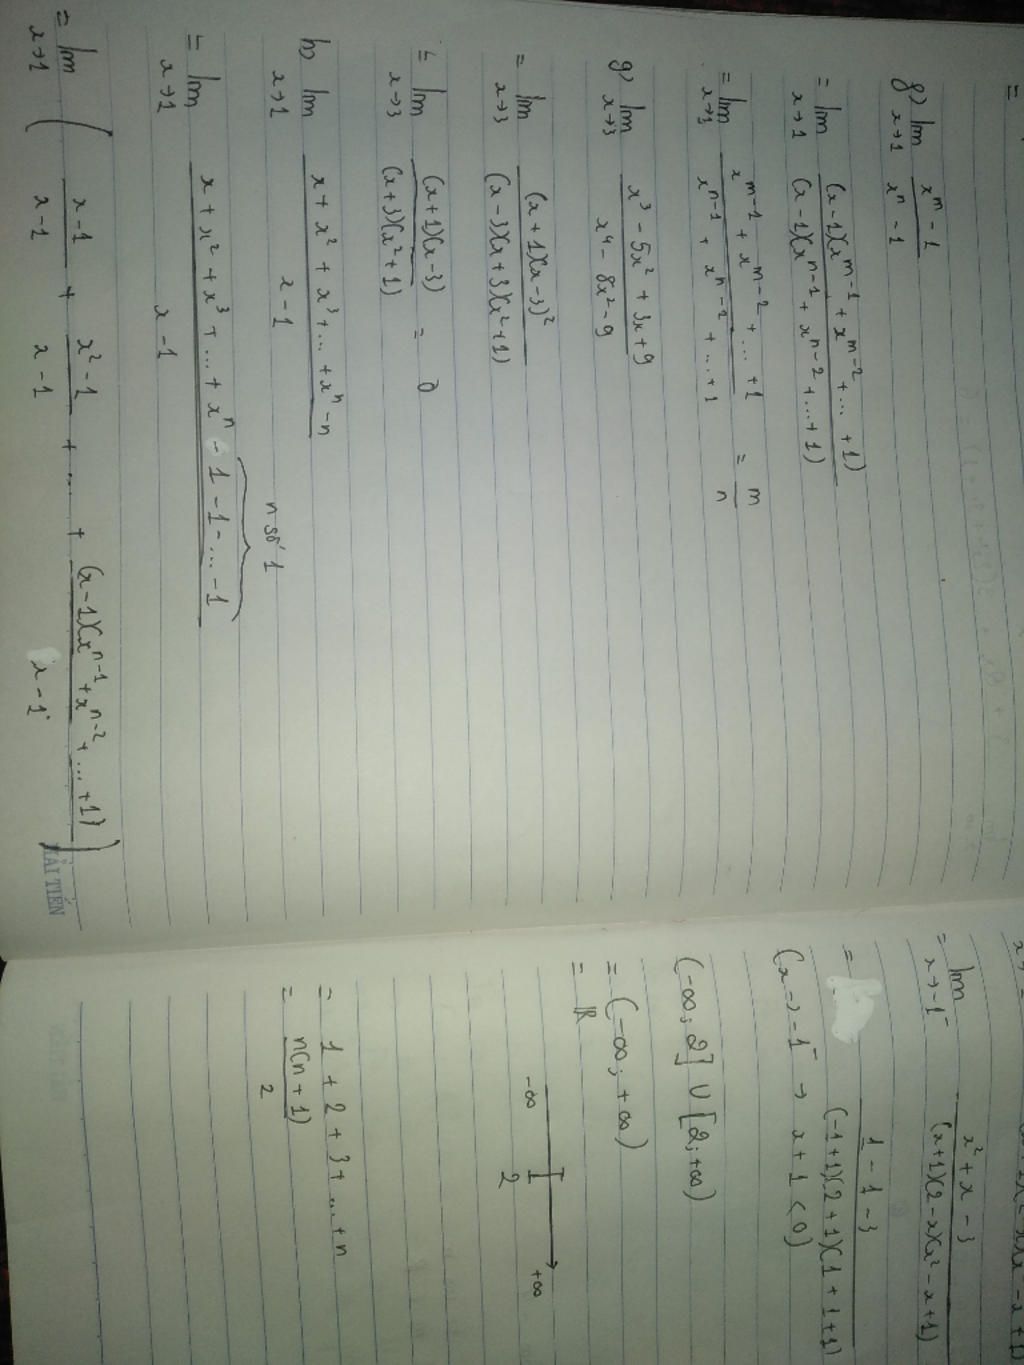 =
f) lim x→1 (x^m - 1)/(x^n - 1)
= lim x→1 ((x-1)(x^{m-1} + x^{m-2} + ... + 1))/((x-1)(x^{n-1} + x^{n-2} + ... + 1))
= lim x→1 (x^{m-1} + x^{m-2} + ... + 1)/(x^{n-1} + x^{n-2} + ... + 1) = m/n
g) lim x→3 (x³ - 5x² + 3x + 9)/(x⁴ - 8x² - 9)
= lim x→3 ((x+1)(x-3)²)/((x-3)(x+3)(x²+1))
= lim x→3 ((x+1)(x-3))/((x+3)(x²+1)) = 0
h) lim x→1 (x + x² + x³ + ... + x^n - n)/(x - 1)
n số 1
= lim x→1 (x + x² + x³ + ... + x^n - 1 - 1 - ... - 1)/(x - 1)
= lim x→1 ((x-1)/(x-1) + (x²-1)/(x-1) + ... + ((x-1)(x^{n-1} + x^{n-2} + ... + 1))/(x-1))
HẢI TIẾN
= lim x→-1⁻ (x² + x - 3)/((x+1)(2-x)(x²-x+1))
= (1 - 1 - 3)/((-1+1)(2+1)(1+1+1))
(x → -1⁻ → x + 1 < 0)
(-∞; 2] ∪ [2; +∞)
= (-∞; +∞)
= ℝ
-∞ 2 +∞
= 1 + 2 + 3 + ... + n
= n(n+1)/2